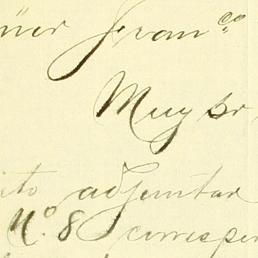 Fran.co
Muy Sr
adjuntar
No. 8 correspon